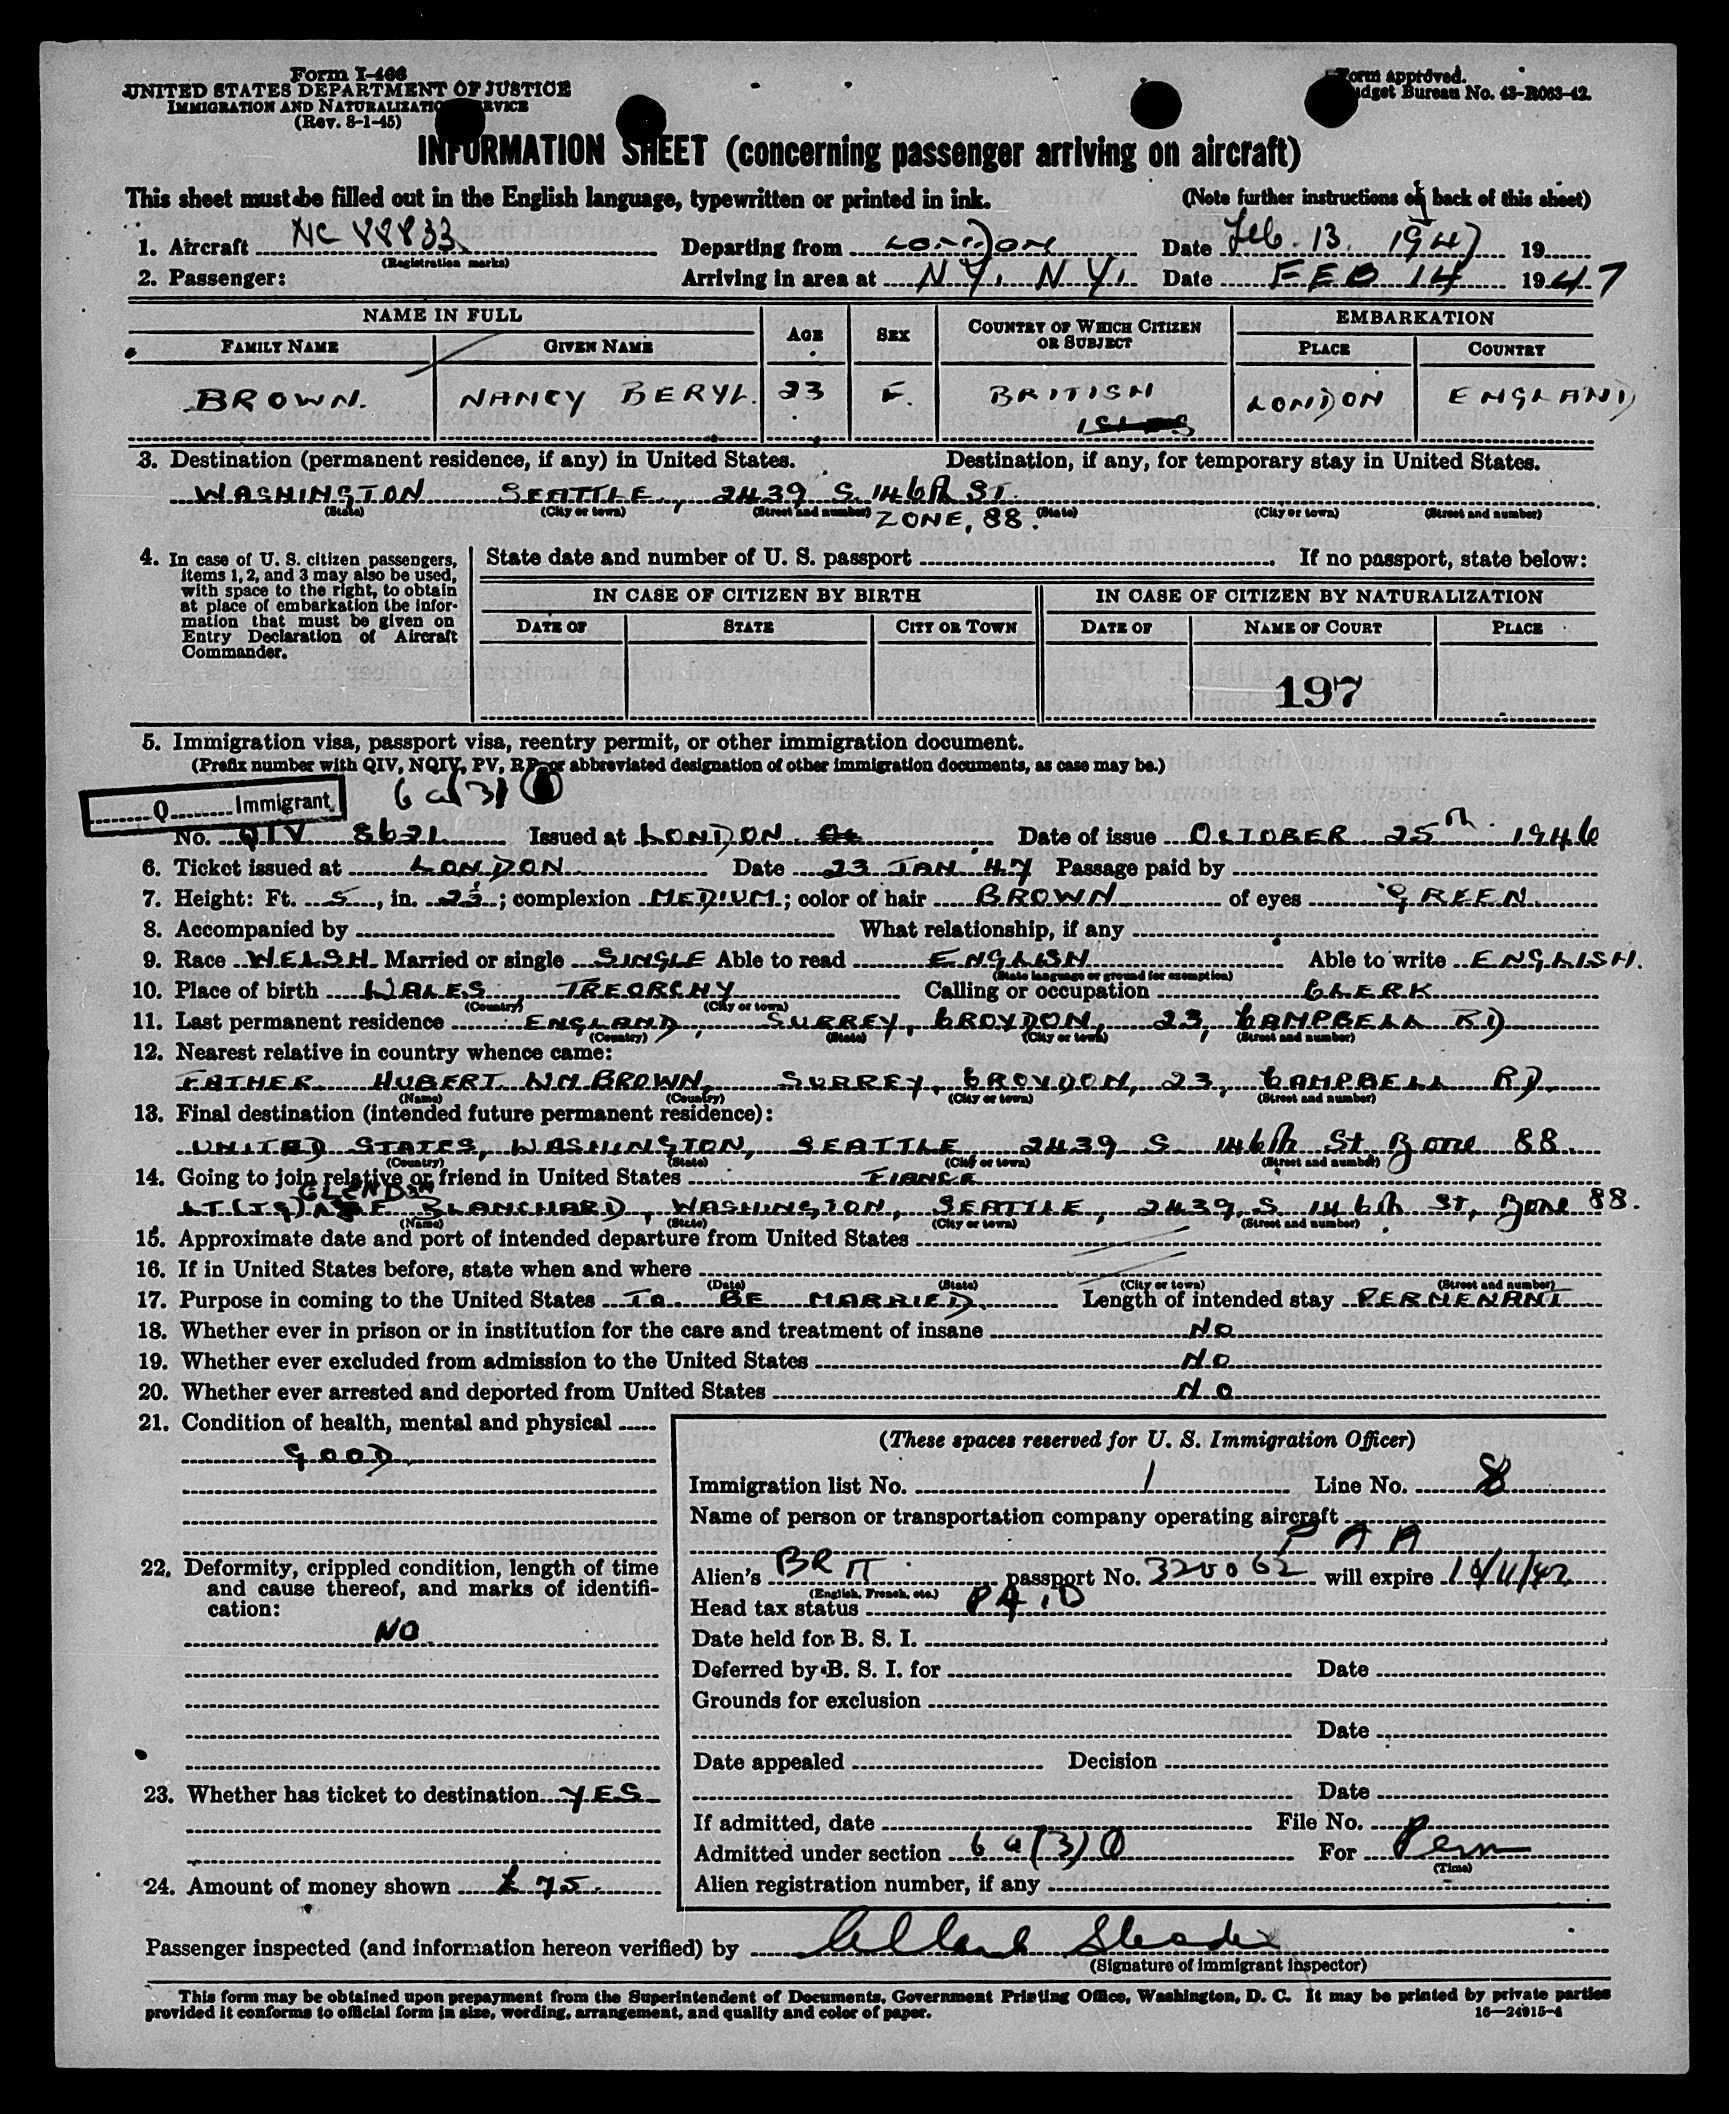 Form I-466
UNITED STATES DEPARTMENT OF JUSTICE
IMMIGRATION AND NATURALIZATION SERVICE
(Rev. 8-1-45)
Form approved.
Budget Bureau No. 43-R063-42.
INFORMATION SHEET (concerning passenger arriving on aircraft)
This sheet must be filled out in the English language, typewritten or printed in ink. (Note further instructions on back of this sheet)
1. Aircraft NC 88833 Departing from LONDON Date Feb. 13. 1947 19
(Registration marks)
2. Passenger: Arriving in area at N.Y., N.Y. Date FEB 14 1947
NAME IN FULL AGE SEX COUNTRY OF WHICH CITIZEN OR SUBJECT EMBARKATION
FAMILY NAME GIVEN NAME PLACE COUNTRY
BROWN. NANCY BERYL. 23 F. BRITISH LONDON ENGLAND
3. Destination (permanent residence, if any) in United States. Destination, if any, for temporary stay in United States.
WASHINGTON SEATTLE, 2439 S. 146th ST.
(State) (City or town) (Street and number) ZONE, 88. (State) (City or town) (Street and number)
4. In case of U. S. citizen passengers, items 1, 2, and 3 may also be used, with space to the right, to obtain at place of embarkation the information that must be given on Entry Declaration of Aircraft Commander.
State date and number of U. S. passport If no passport, state below:
IN CASE OF CITIZEN BY BIRTH IN CASE OF CITIZEN BY NATURALIZATION
DATE OF STATE CITY OR TOWN DATE OF NAME OF COURT PLACE
197
5. Immigration visa, passport visa, reentry permit, or other immigration document.
(Prefix number with QIV, NQIV, PV, RP, or abbreviated designation of other immigration documents, as case may be.)
Q Immigrant 6 a(3)
No. QIV 8621 Issued at LONDON Date of issue OCTOBER 25th 1946
6. Ticket issued at LONDON Date 23 JAN '47 Passage paid by
7. Height: Ft. 5, in. 2½; complexion MEDIUM; color of hair BROWN of eyes GREEN
8. Accompanied by What relationship, if any
9. Race WELSH Married or single SINGLE Able to read ENGLISH Able to write ENGLISH.
(State language or ground for exemption)
10. Place of birth WALES, TREORCHY Calling or occupation CLERK
(Country) (City or town)
11. Last permanent residence ENGLAND, SURREY, CROYDON, 23, CAMPBELL RD
(Country) (State) (City or town) (Street and number)
12. Nearest relative in country whence came:
FATHER HUBERT WM BROWN, SURREY, CROYDON, 23, CAMPBELL RD.
(Name) (Country) (City or town) (Street and number)
13. Final destination (intended future permanent residence):
UNITED STATES, WASHINGTON, SEATTLE, 2439 S 146th St Zone 88.
(Country) (State) (City or town) (Street and number)
14. Going to join relative or friend in United States FIANCE
LT (J.G) GLENDON BLANCHARD, WASHINGTON, SEATTLE, 2439, S 146th ST, Zone 88.
(Name) (State) (City or town) (Street and number)
15. Approximate date and port of intended departure from United States
16. If in United States before, state when and where
(Date) (State) (City or town) (Street and number)
17. Purpose in coming to the United States TO BE MARRIED. Length of intended stay PERMENANT
18. Whether ever in prison or in institution for the care and treatment of insane NO
19. Whether ever excluded from admission to the United States NO
20. Whether ever arrested and deported from United States NO
21. Condition of health, mental and physical
GOOD
22. Deformity, crippled condition, length of time and cause thereof, and marks of identification:
NO
23. Whether has ticket to destination YES
24. Amount of money shown £ 75.
(These spaces reserved for U. S. Immigration Officer)
Immigration list No. 1 Line No. 8
Name of person or transportation company operating aircraft
P A A
Alien's BRIT passport No. 320062 will expire
(English, French, etc.)
Head tax status PAID
Date held for B. S. I.
Deferred by B. S. I. for Date
Grounds for exclusion
Date
Date appealed Decision
Date
If admitted, date File No.
Admitted under section 6 a(3) For Perm
(Time)
Alien registration number, if any
Passenger inspected (and information hereon verified) by
(Signature of immigrant inspector)
This form may be obtained upon prepayment from the Superintendent of Documents, Government Printing Office, Washington, D. C. It may be printed by private parties
provided it conforms to official form in size, wording, arrangement, and quality and color of paper. 16—24915-4